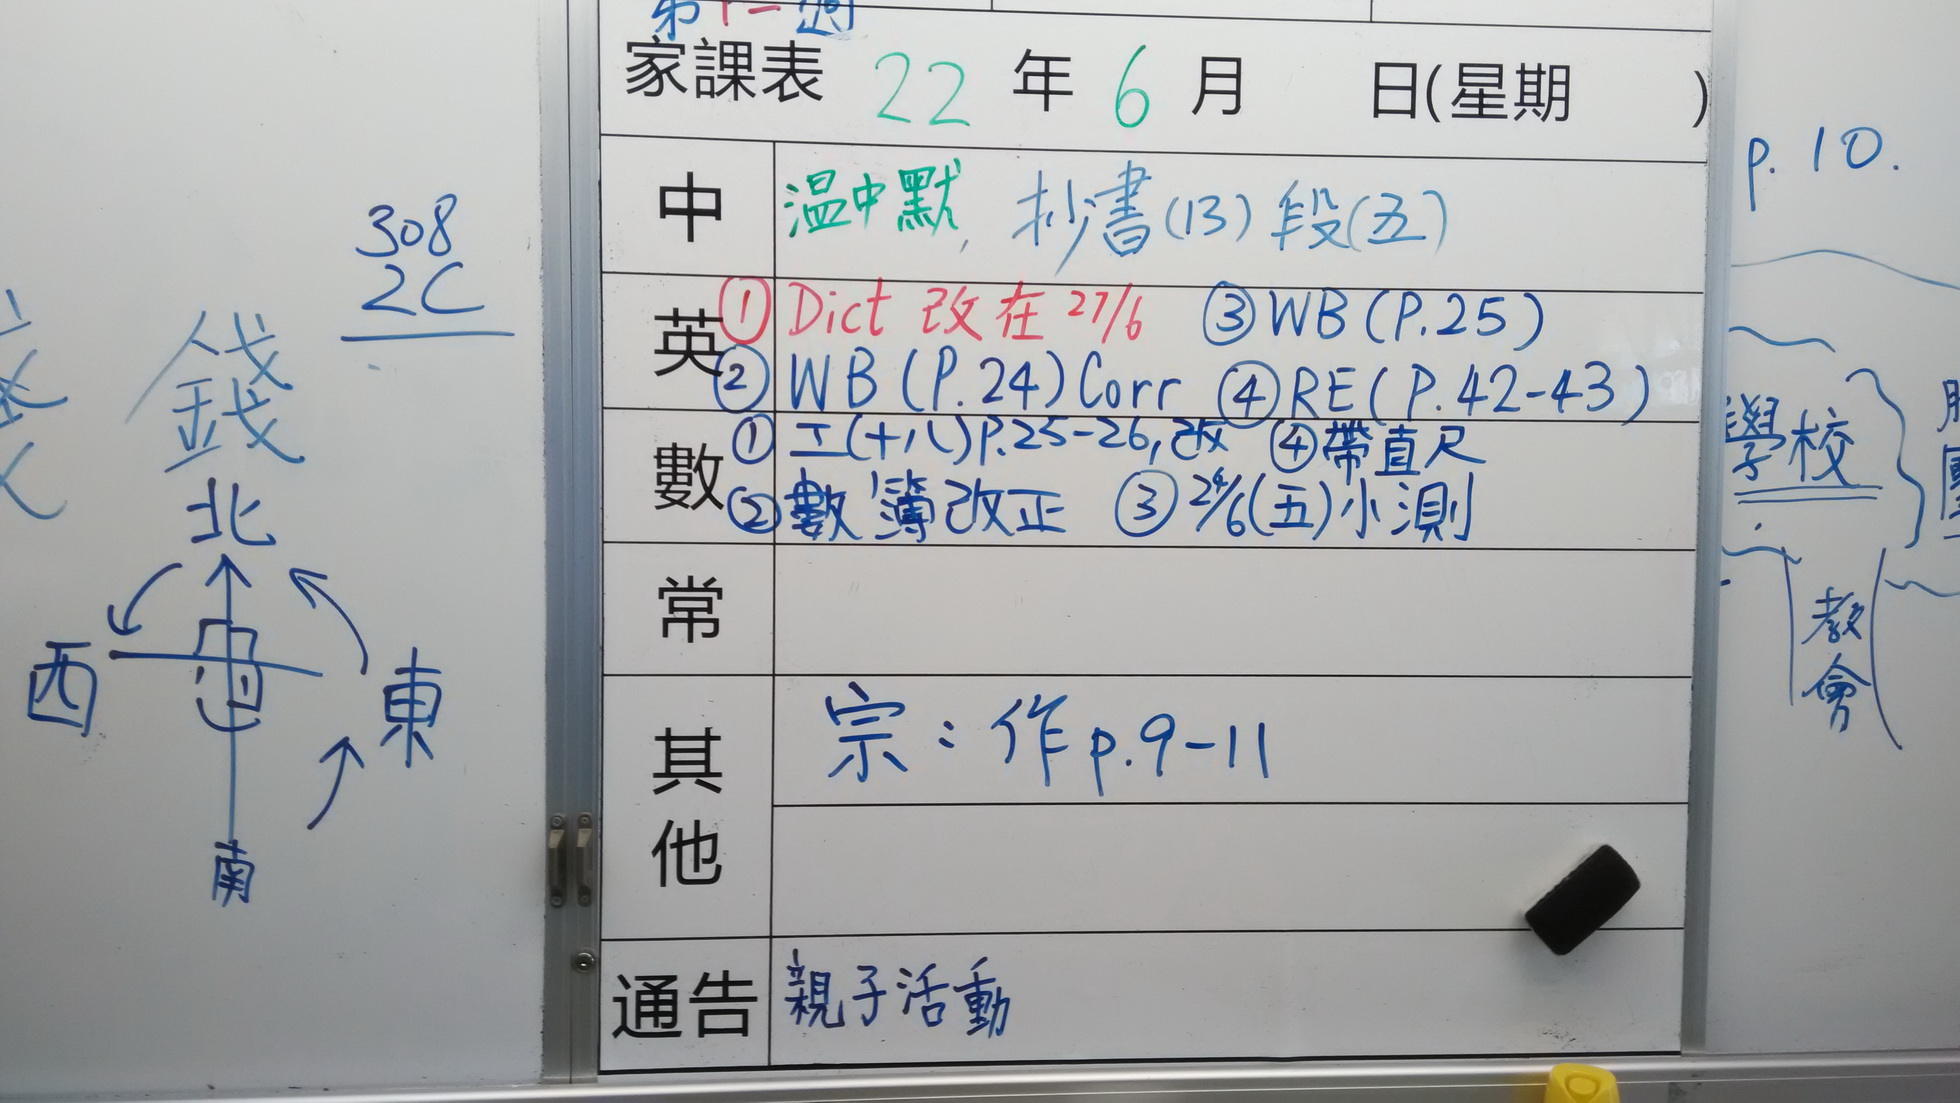 308
2C
錢
北
西
東
南
第十一週
家課表 22 年 6 月 日(星期 )
中 温中默, 抄書(13) 段(五)
英 ① Dict 改在 27/6 ③ WB (P.25)
② WB (P.24) Corr ④ RE (P.42-43)
數 ① 工(十八)P.25-26,改 ④ 帶直尺
② 數簿改正 ③ 24/6(五)小測
常
其他 宗:作p.9-11
通告 親子活動
p.10.
學校
教會